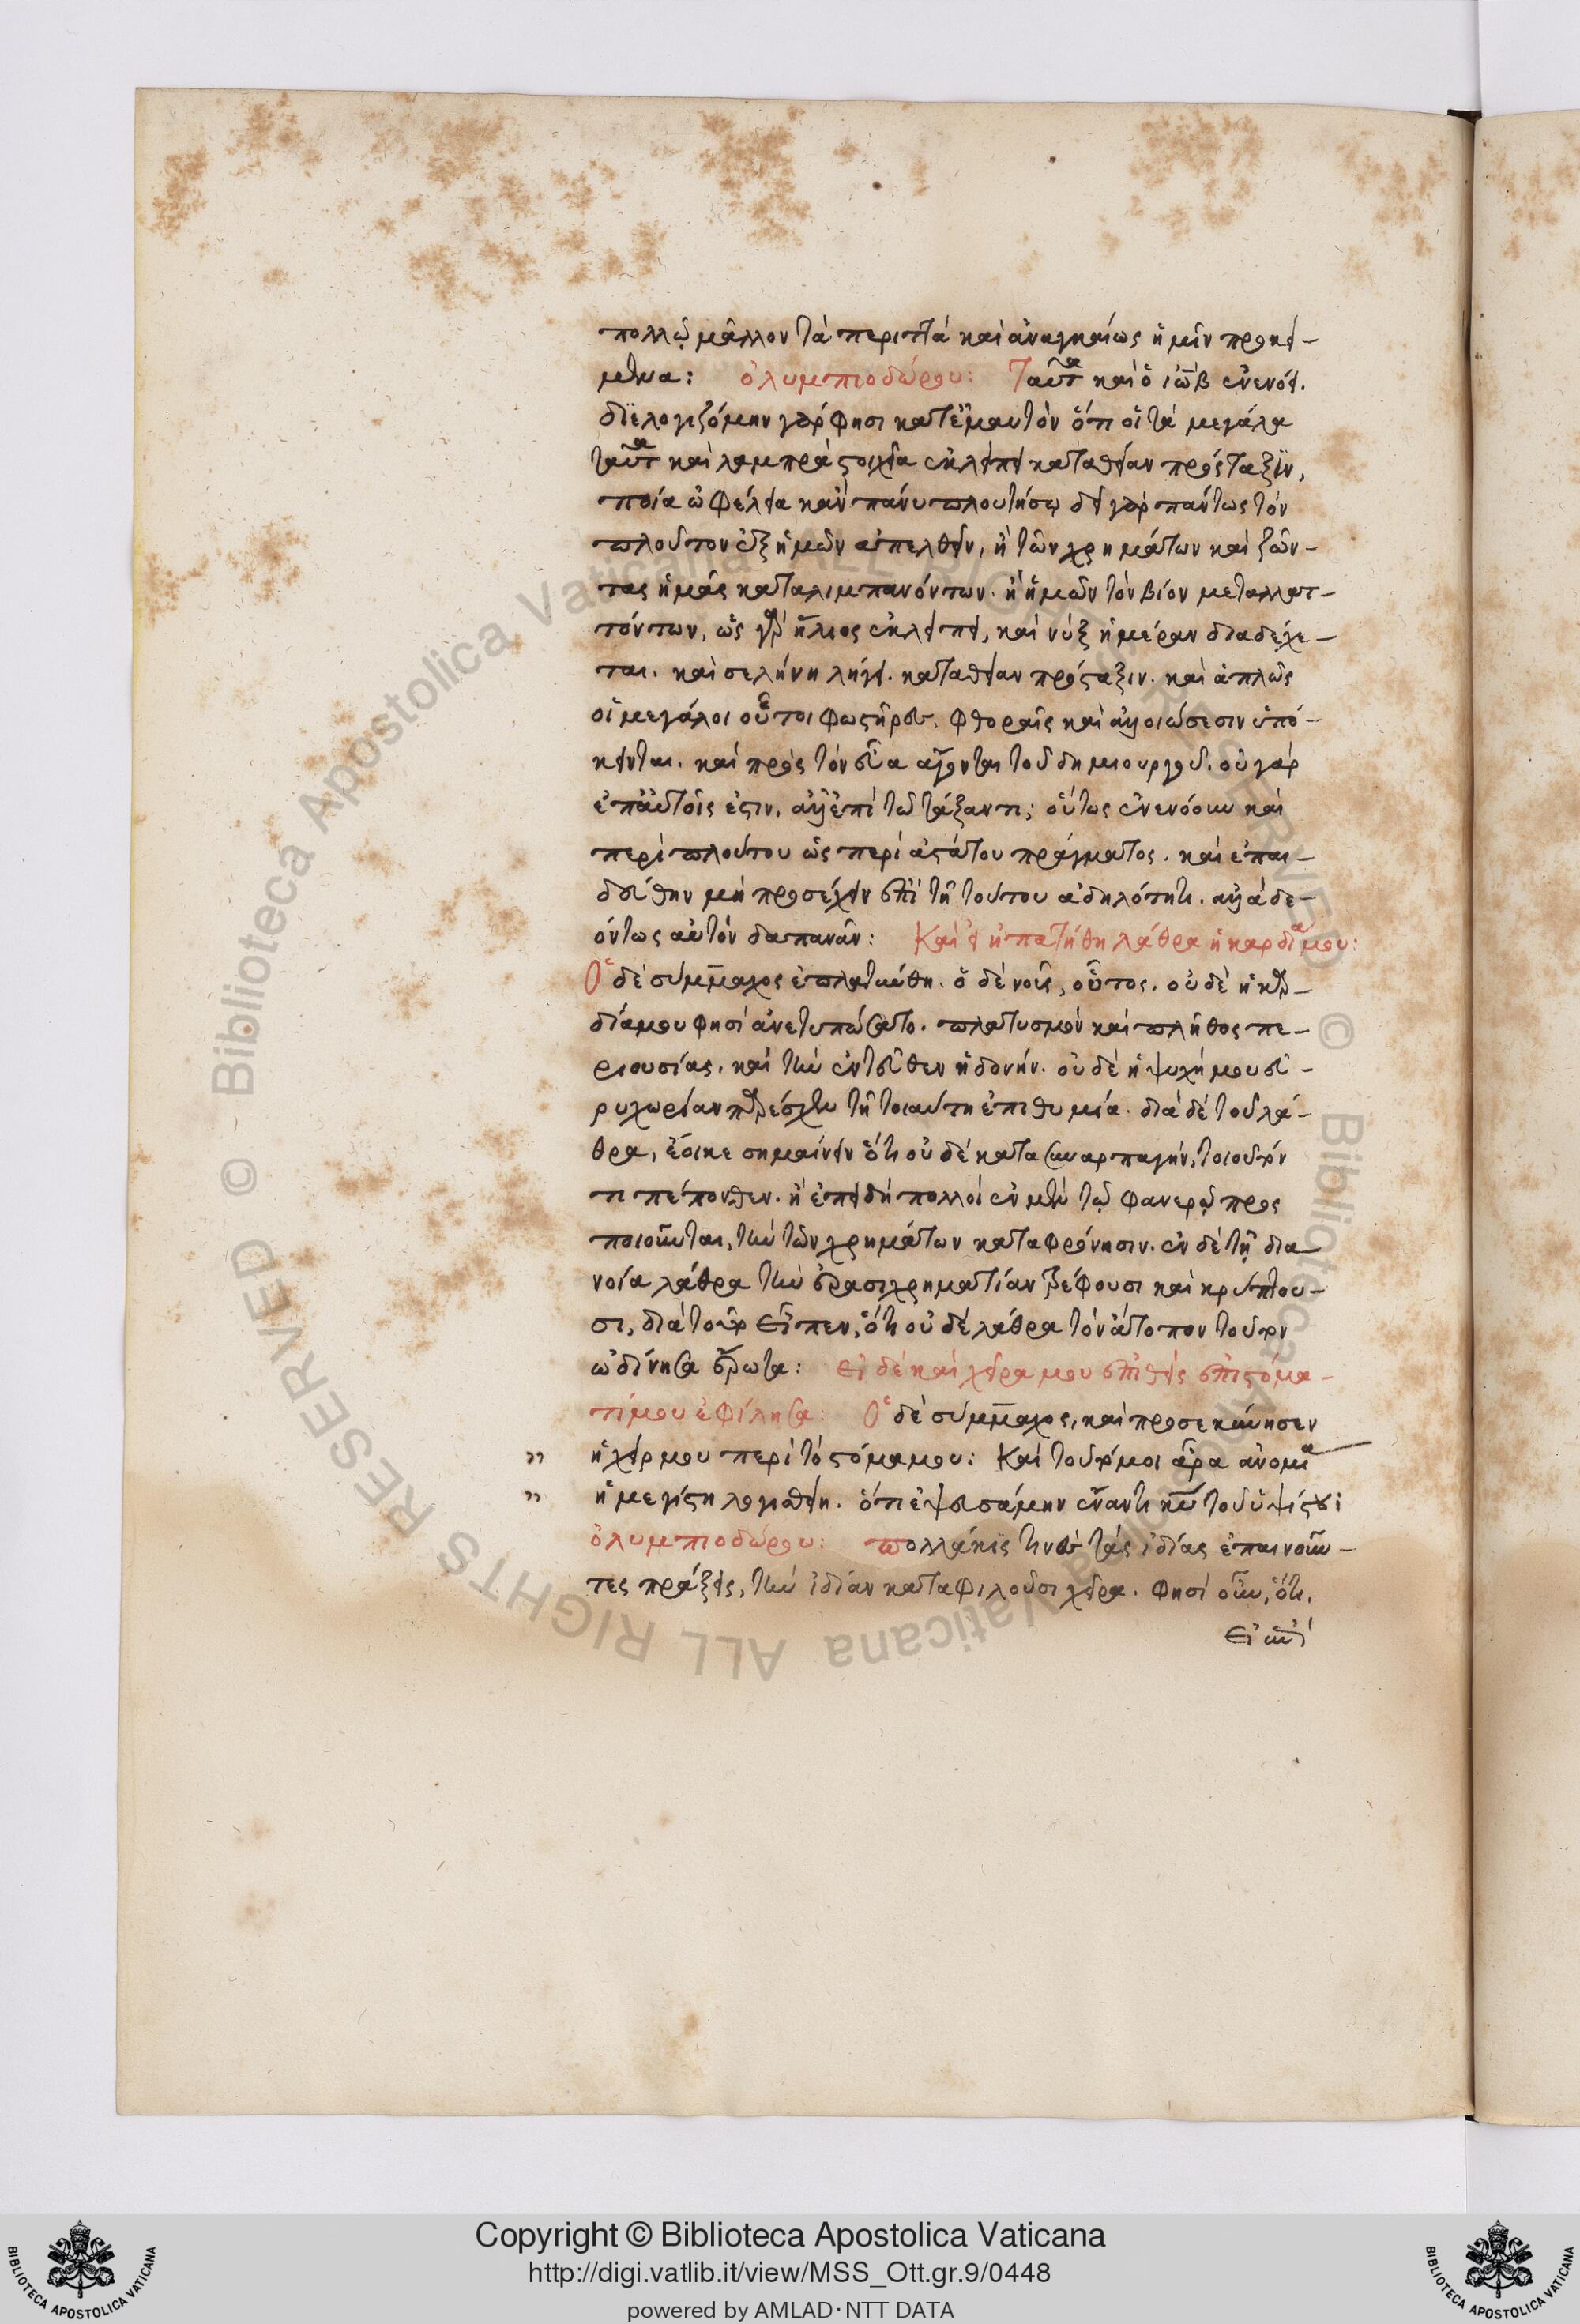 πολλῷ μᾶλλον τὰ περιττὰ καὶ ἀναγκαίως ἡμῖν προκεί-
μενα: ὀλυμπιοδώρου: Ταῦτα καὶ ὁ ἰὼβ ἐνενόει.
διελογιζόμην γάρ φησι κατ' ἐμαυτὸν ὅτι εἰ τὰ μεγάλα
ταῦτα καὶ λαμπρὰ στοιχεῖα ἐκλείπει κατὰ θείαν πρόσταξιν,
ποία ὠφέλεια κἂν πάνυ πλουτήσω δεῖ γὰρ πάντως τὸν
πλοῦτον ἐξ ἡμῶν ἀπελθεῖν, ἢ τῶν χρημάτων καὶ ζῶν-
τας ἡμᾶς καταλιμπανόντων. ἢ ἡμῶν τὸν βίον μεταλλατ-
τόντων, ὡς γὰρ ἥλιος ἐκλείπει, καὶ νὺξ ἡμέραν διαδέχε-
ται. καὶ σελήνη λήγει. κατὰ θείαν πρόσταξιν. καὶ ἁπλῶς
οἱ μεγάλοι οὗτοι φωστῆρες. φθοραῖς καὶ ἀλλοιώσεσιν ὑπό-
κεινται. καὶ πρὸς τὸν ἕνα ἄγονται τοῦ δημιουργοῦ. οὐ γὰρ
ἐπ' αὐτοῖς ἐστιν. ἀλλ' ἐπὶ τῷ τάξαντι; οὕτως ἐνενόουν καὶ
περὶ πλούτου ὡς περὶ ἀστάτου πράγματος. καὶ ἐπαι-
δεύθην μὴ προσέχειν ἐπὶ τῇ τούτου ἀδηλότητι. ἀλλὰ δε-
όντως αὐτὸν δαπανᾶν: Καὶ εἰ ἠπατήθη λάθρα ἡ καρδία μου:
Ὁ δὲ σύμμαχος ἐπλατύνθη. ὁ δὲ νοῦς, οὗτος. οὐδὲ ἡ καρ-
δία μου φησὶ ἀνετυπώσατο. πλατυσμὸν καὶ πλῆθος πε-
ριουσίας. καὶ τὴν ἐντεῦθεν ἡδονήν. οὐδὲ ἡ ψυχή μου εὐ-
ρυχωρίαν παρέσχεν τῇ τοιαύτῃ ἐπιθυμία. διὰ δὲ τοῦ λά-
θρα, ἔοικε σημαίνειν ὅτι οὐδὲ κατὰ συναρπαγὴν, τοιοῦτόν
τι πέπονθεν. ἢ ἐπειδὴ πολλοὶ ἐν μὲν τῷ φανερῷ προσ
ποιοῦνται, τὴν τῶν χρημάτων καταφρόνησιν. ἐν δὲ τῇ δια
νοία λάθρα τὴν ἐρασιχρηματίαν τρέφουσι καὶ κρύπτου-
σι, διὰ τοῦτο εἶπεν, ὅτι οὐδὲ λάθρα τὸν ἄτοπον τοῦτον
ὠδίνησα ἔρωτα: εἰ δὲ καὶ χεῖρα μου ἐπιθεὶς ἐπὶ στόμα-
τί μου ἐφίλησα: Ὁ δὲ σύμμαχος, καὶ προσεκύνησεν
ἡ χείρ μου περὶ τὸ στόμα μου: Καὶ τοῦτό μοι ἄρα ἀνομία
ἡ μεγίστη λογισθείη. ὅτι ἐψευσάμην ἔναντι κυρίου τοῦ ὑψίστου:
ὀλυμπιοδώρου: πολλάκις τινὲς τὰς ἰδίας ἐπαινοῦν-
τες πράξεις, τὴν ἰδίαν καταφιλοῦσι χεῖρα. φησὶ οὖν, ὅτι.